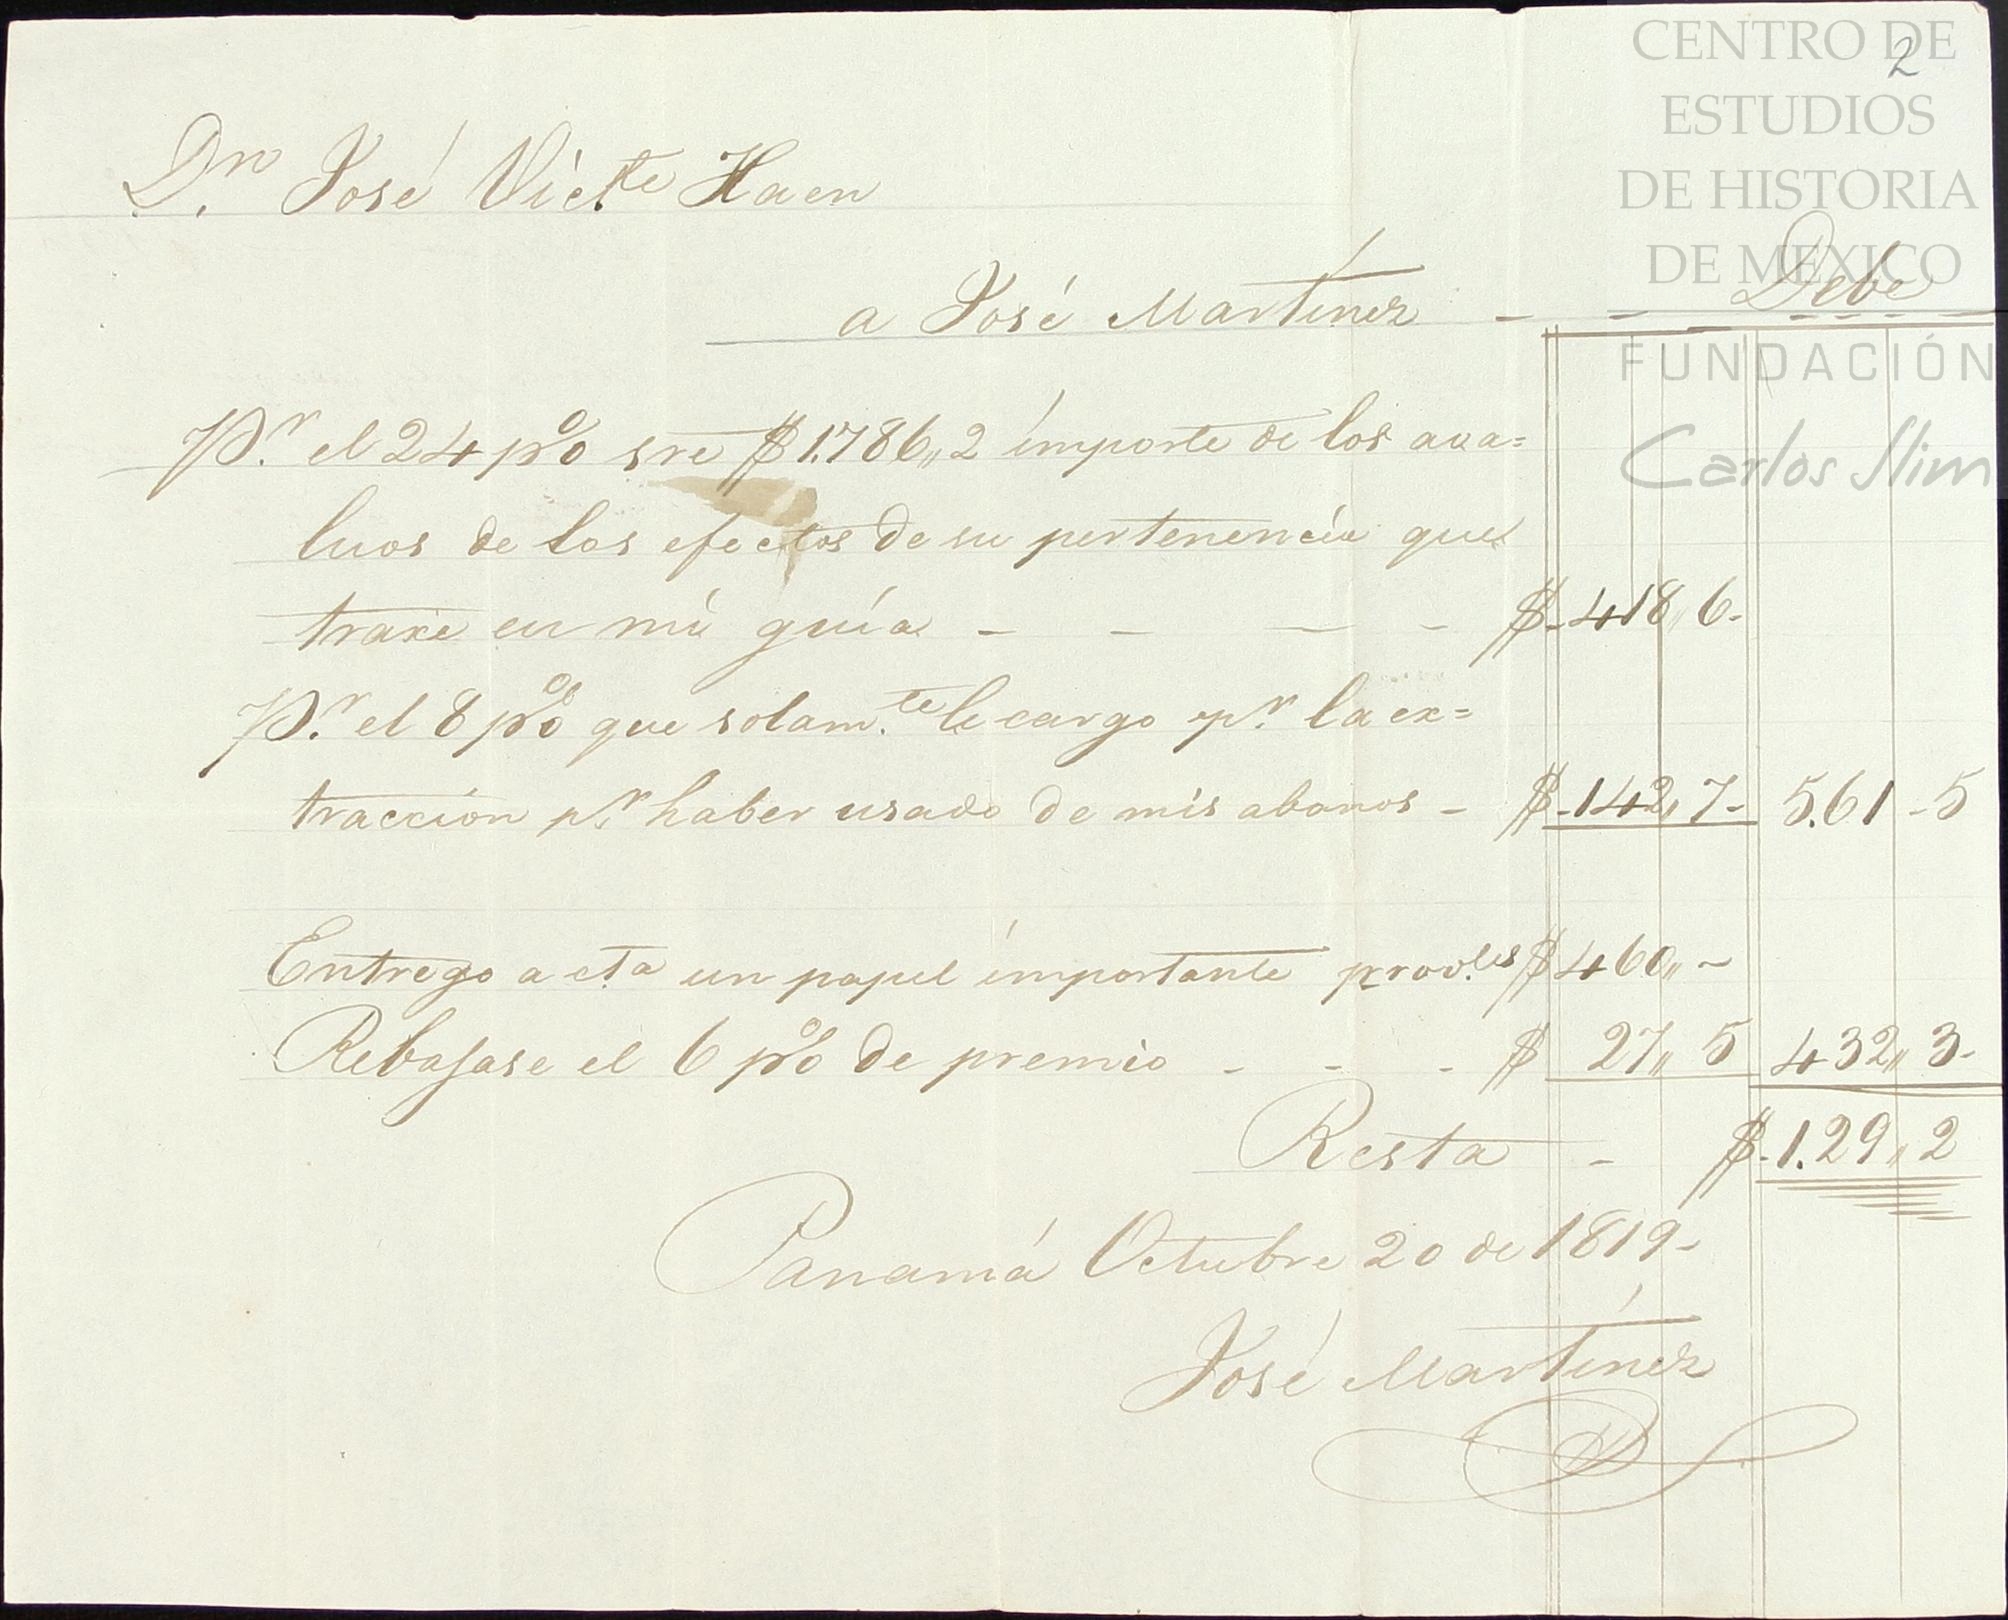 CENTRO DE
ESTUDIOS
DE HISTORIA
DE MEXICO
FUNDACIÓN
Carlos Slim
2
Dn. José Victe Haen
a José Martínez - - Debe
Pr. el 24 p%o sre $1.786,,2 importe de los ava=
luos de los efectos de su pertenencia que
traxe en mi guía - - - - $-418,,6-
Pr. el 8 p%o que solam.te le cargo pr. la ex=
tracción pr. haber usado de mis abonos - $-142,,7- 5.61-5
Entrego a cta un papel importante $460,,-
Rebajase el 6 p%o de premio - - - $ 27,,5 432,,3-
Resta - $-1.29,,2
Panamá Octubre 20 de 1819-
José Martínez